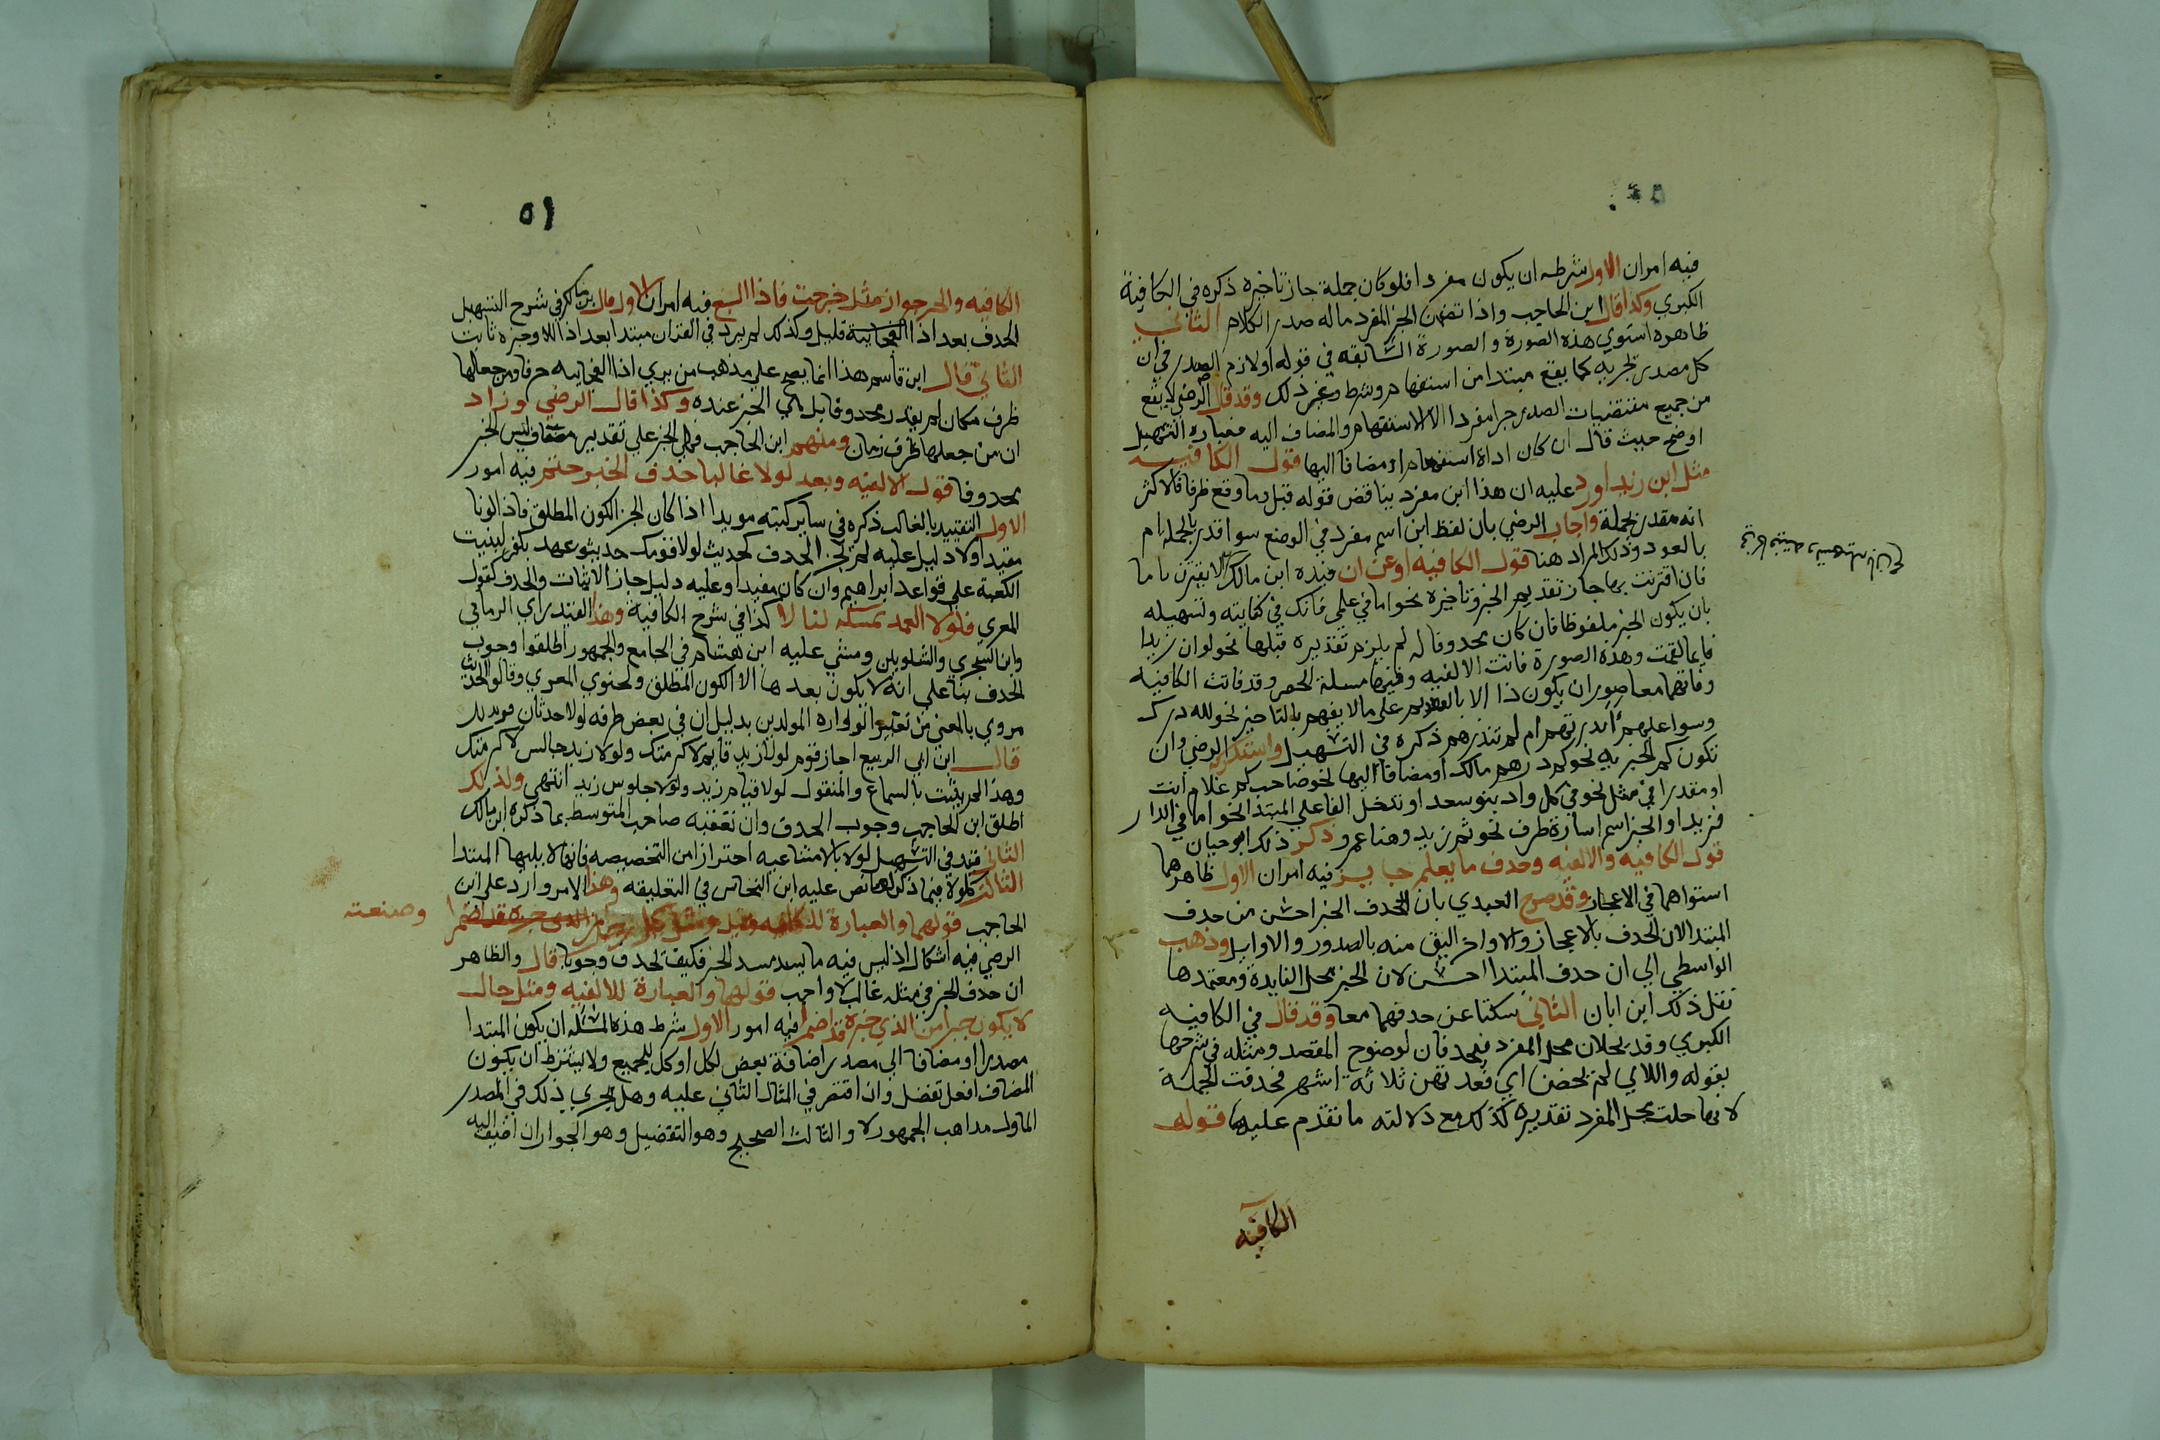 فيه امران الاول شرطه ان يكون مفردا فلو كان جملة جاز تاخيره ذكره في الكافية
الكبري وكذا قال ابن الحاجب واذا تضمن الخبر المفرد ماله صدر الكلام الثاني
ظاهره استوي هذه الصورة والصورة السابقه في قوله او لازم الصدر في ان
كل مصدر تجزيه كما يقع مبتدا من استفهام وشرط وغير ذلك وقد قال الرضي لا يقع
من جميع مقتضيات الصدر خبرا مفردا الا الاستفهام والمضاف اليه وعبارة التسهيل
اوضح حيث قال ان كان اداة استفهام او مضافا اليها قول الكافيه
مثل ابن زيد اورد عليه ان هذا ابن مفرد يناقض قوله قبل وما وقع ظرفا فالاكثر
انه مقدر بجملة واجاب الرضي بان لفظ ابن اسم مفرد في الوضع سوا قدر بالجملة ام
بالعود وذلك المراد هنا قول الكافيه او عن ان قيده ابن مالك بالا يقترن باما
فان اقترنت بها جاز تقديم الخبر وتاخيره نحو اما في علمي فانك في كفايته وتسهيله
بان يكون الخبر ملفوظا فان كان محذوفا له لم يلزم تقديره قبلها نحو لو ان زيدا
قايما لقمت وهذه الصورة فاتت الالفيه وفيها مسلة الحصر وقد فاتت الكافيه
وفاتهما معا صور ان يكون ذا الا بالتقديم علي ما لا يفهم بالتاخير نحو لله درك
وسوا عليهم أانذرتهم ام لم تنذرهم ذكره في التسهيل واستدرك الرضي وان
تكون كم الخبريه نحو كم درهم مالك او مضافا اليها نحو صاحب كم غلام انت
او مقدرا في مثل نحو في كل واد بنو سعد او تدخل الفا علي المبتدا نحو اما في الدار
فزيد او الخبر اسم اشارة ظرف نحو ثم زيد وهنا عمرو ذكر ذلك ابو حيان
قول الكافيه والالفيه وحذف ما يعلم جايز فيه امران الاول ظاهرهما
استواهما في الاعجاز وقد صرح العبدي بان الحذف الخبر احسن من حذف
المبتدا لان الحذف بالاعجاز والاواخر اليق منه بالصدور والاوايل وذهب
الواسطي الي ان حذف المبتدا احسن لان الخبر محل الفايدة ومعتمدها
نقل ذلك ابن ابان الثاني سكتا عن حذفهما معا وقد قال في الكافيه
الكبري وقد يحلان محل المفرد فيحذفان لوضوح المقصد ومثله في شرحها
بقوله واللاي لم يحضن اي فعدتهن ثلاثة اشهر فحذفت الجملة
لانها حلت محل المفرد تقديره كذلك مع دلالته ما تقدم عليها قوله
الكافيه
٥١
الكافيه والخبر جوازا مثل خرجت فاذا السبع فيه امران الاول قال ابن مالك في شرح التسهيل
الحذف بعد اذا الفجاية قليل وكذلك لم يرد في القران مبتدا بعد اذا الا وخبره ثابت
الثاني قال ابن قاسم هذا انما يصح علي مذهب من يري اذا الفجاييه حرفا ومن جعلها
ظرف مكان لم يقدر محذوفا بل هي الخبر عنده وكذا قال الرضي وزاد
ان من جعلها ظرف زمان ومنهم ابن الحاجب فهي الخبر علي تقدير مضاف ليس الخبر
محذوفا قول الالفيه وبعد لولا غالبا حذف الخبر حتم فيه امور
الاول التقييد بالغالب ذكره في ساير كتبه مويدا اذا كان الخبر الكون المطلق فاذا لو كان
مقيدا ولا دليل عليه لم يجز الحذف كحديث لولا قومك حديثو عهد بكفر لبنيت
الكعبة علي قواعد ابراهيم وان كان مقيدا وعليه دليل جاز الاثبات والحذف كقول
المعري فلولا الغمد يمسكه لسالا كذا في شرح الكافية وهذا القيد راي الرماني
وابن الشجري والشلوبين ومشي عليه ابن هشام في الجامع والجمهور اطلقوا وجوب
الحذف بنا علي انه لا يكون بعدها الا الكون المطلق ولحنوا المعري وقالوا الحديث
مروي بالمعني من تغيير الرواة المولدين بدليل ان في بعض طرفه لولا حدثان قومك
قال ابن ابي الربيع اجاز قوم لولا زيد قايم لاكرمتك ولولا زيد جالس لاكرمتك
وهذا لم يثبت بالسماع والمنقول لولا قيام زيد ولولا جلوس زيد انتهي ولذلك
اطلق ابن الحاجب وجوب الحذف وان تعقبه صاحب المتوسط بما ذكره ابن مالك
الثاني قيد في التسهيل لولا بالامتناعيه احترازا من التحضيضيه فانها لا يليها المبتدا
الثالث كلولا فيما ذكر لوما نص عليه ابن النحاس في التعليقه وهذا الامر وارد علي ابن
الحاجب قولهما والعبارة للكافيه وصنعته
الرضي فيه اشكال اذ ليس فيه ما يسد مسد الخبر فكيف حذف وجوبا قال والظاهر
ان حذف الخبر في مثله غالب لا واجب قولهما والعبارة للالفيه ومثل حال
لا يكون خبرا عن الذي خبره قد اضمرا فيه امور الاول شرط هذه المسئلة ان يكون المبتدا
مصدرا او مضافا الي مصدر اضافة بعض لكل او كل للجميع ولا يشترط ان يكون
المضاف افعل تفضيل وان اقتصر في المثال الثاني عليه وهل يجري ذلك في المصدر
الماول مذاهب الجمهور لا والثالث الصحيح وهو التفضيل وهو الجواز ان اضيف اليه